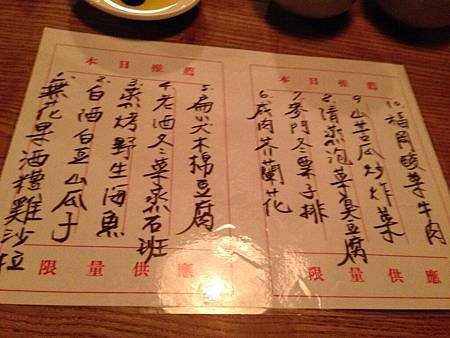 本日推薦
10. 福岡酸菜牛肉
9. 山苦瓜炒炸菜
8. 清蒸泡菜臭豆腐
7. 麥門冬栗子排
6. 咸肉芥蘭花
限量供應
本日推薦
5. 扁尖木棉豆腐
4. 老酒冬菜蒸石班
3. 蒸烤野生海魚
2. 白酒白豆山瓜子
1. 無花果酒糟雞沙拉
限量供應